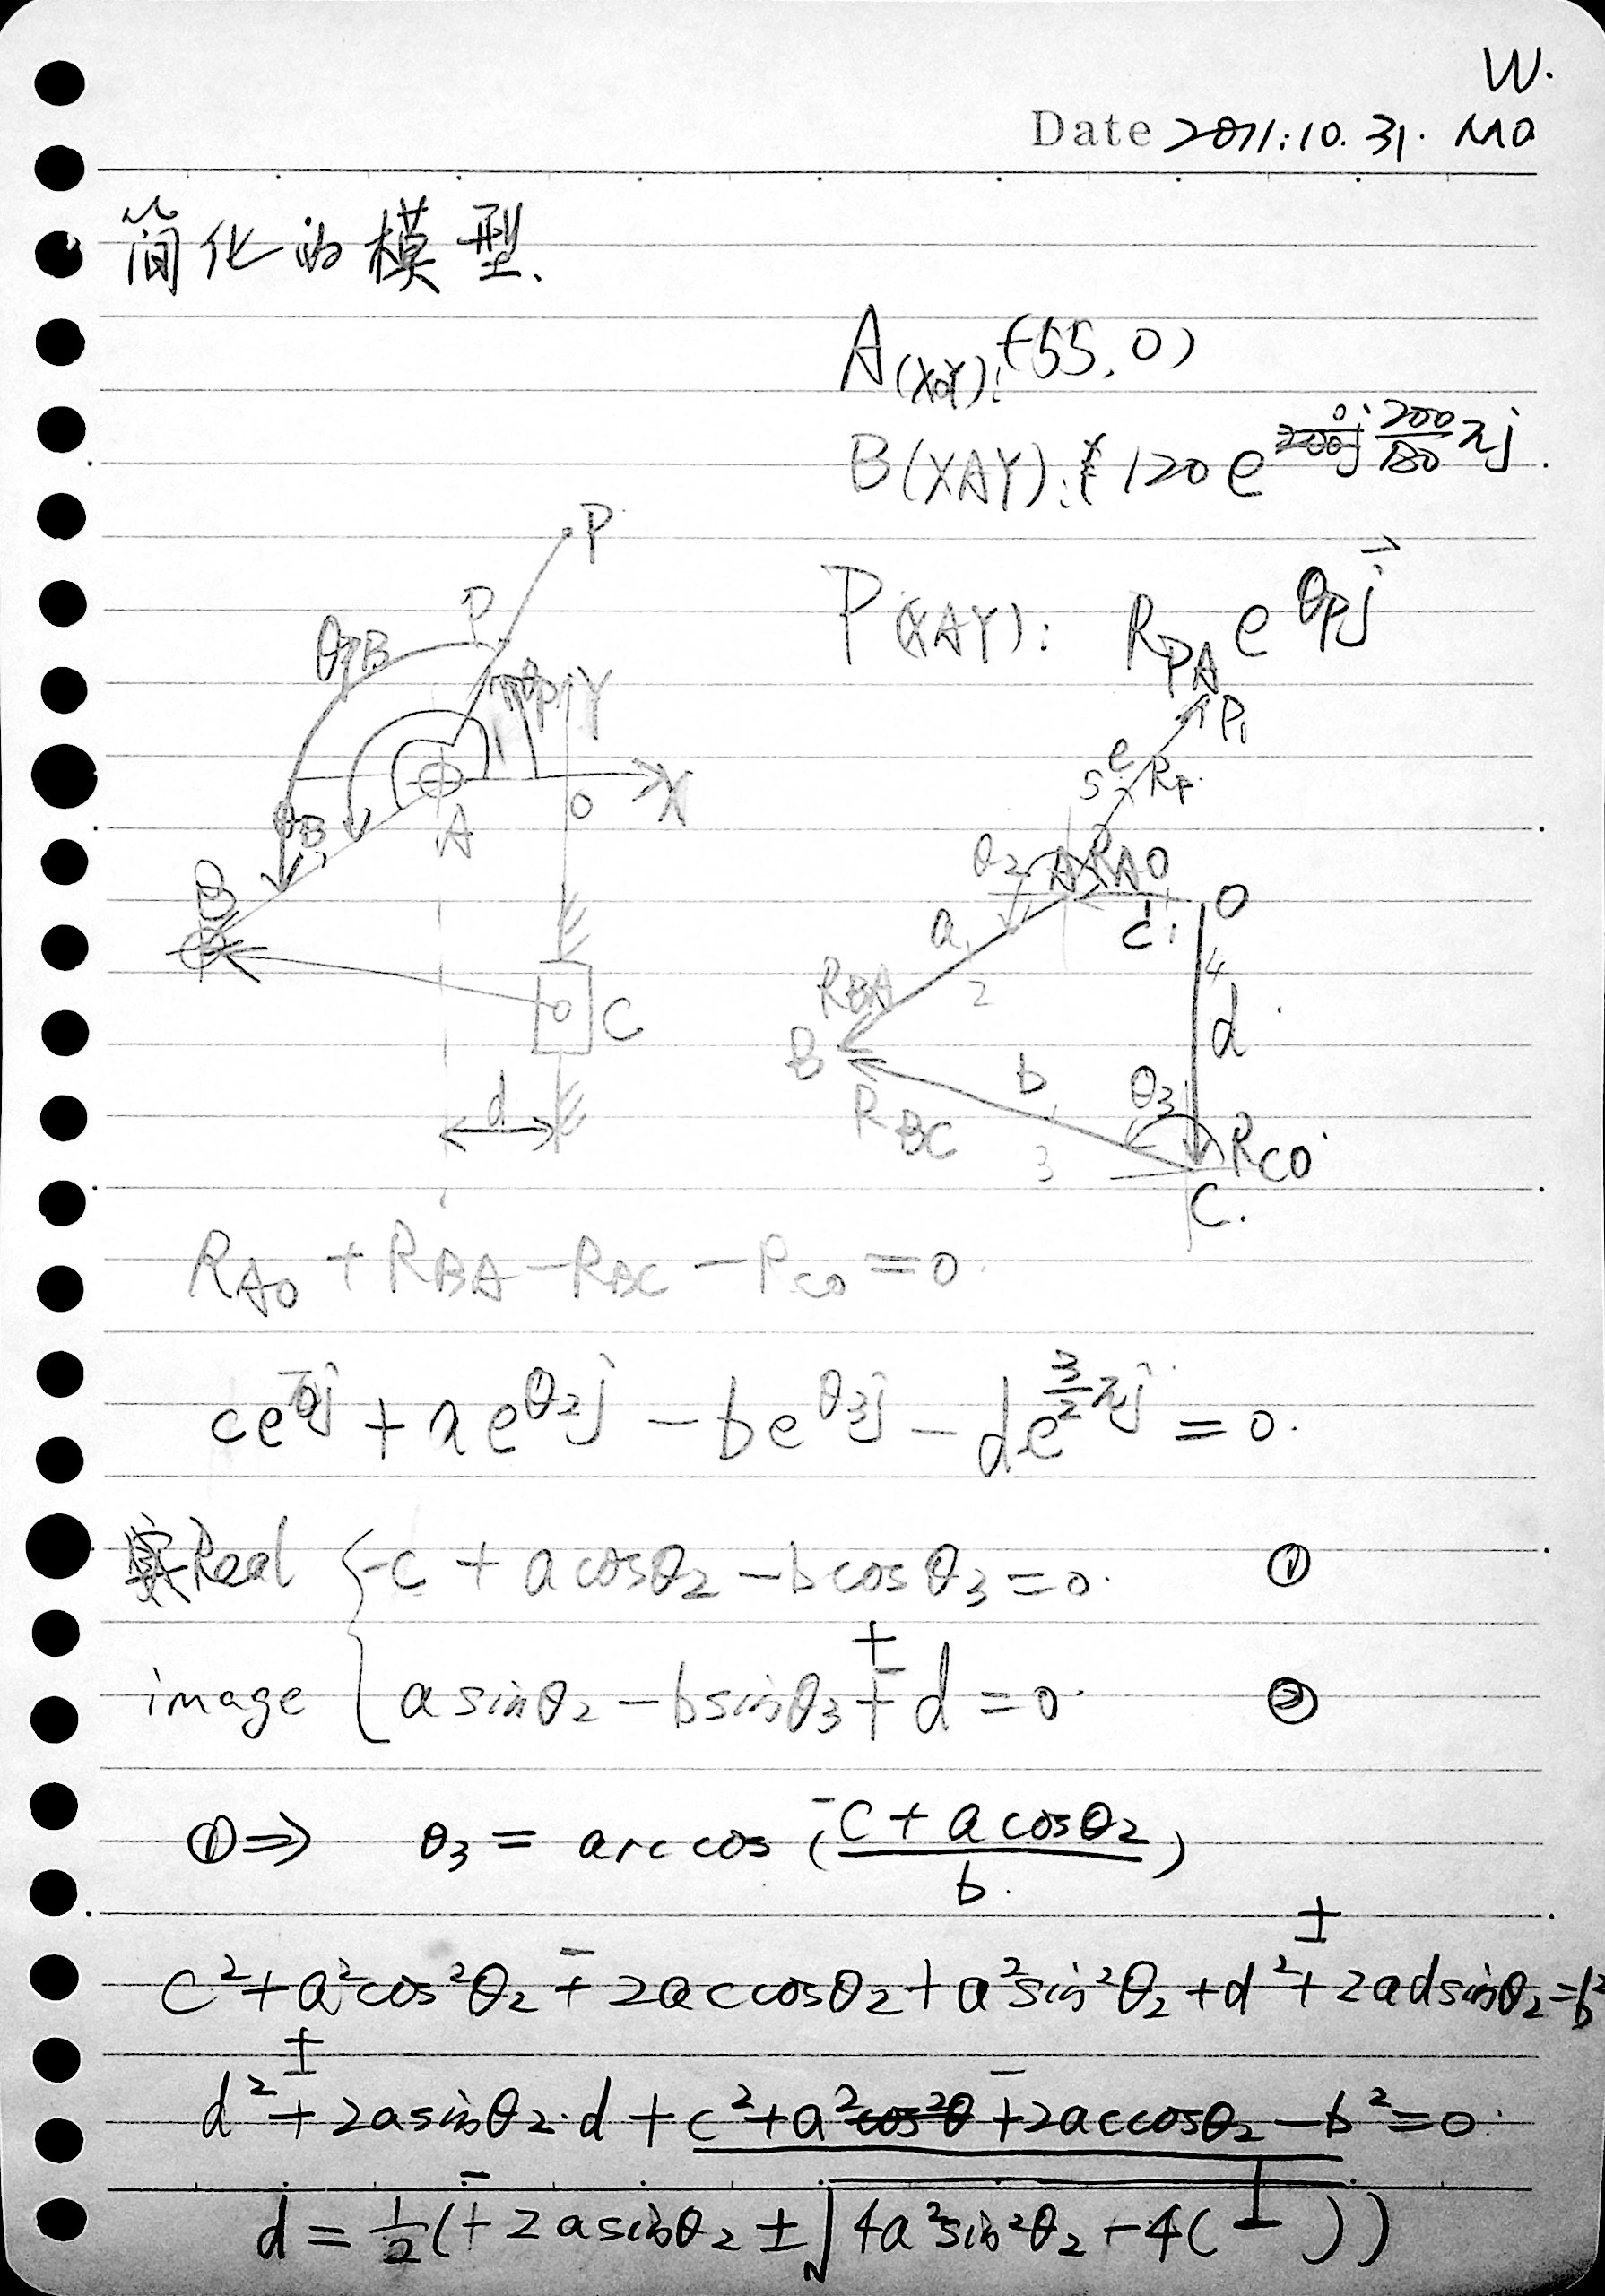 W.
Date 2011.10.31. Mo
简化的模型.
A(XOY): (-55, 0)
B(XAY): 120 e^{\frac{200}{180}πj}.
P(XAY): R_{PA} e^{θ_P j}
P
P
θ_{PB}
θ_P
Y
X
O
A
θ_B
B
C
d
P_1
e
R_P
S
θ_2
A
R_{AO}
O
c
1
a
4
R_{BA}
2
d
B
b
θ_3
R_{BC}
3
R_{CO}
C.
R_{AO} + R_{BA} - R_{BC} - R_{CO} = 0
ce^{πj} + ae^{θ_2 j} - be^{θ_3 j} - de^{\frac{3}{2}πj} = 0.
Real { -c + a cosθ_2 - b cosθ_3 = 0. ①
image { a sinθ_2 - b sinθ_3 + d = 0. ②
① ⇒ θ_3 = arccos(\frac{-c + a cosθ_2}{b.})
c² + a²cos²θ_2 - 2ac cosθ_2 + a²sin²θ_2 + d² ± 2ad sinθ_2 = b²
d² ± 2a sinθ_2·d + c² + a² - 2ac cosθ_2 - b² = 0.
d = \frac{1}{2}(- 2a sinθ_2 ± \sqrt{4a²sin²θ_2 - 4( )})